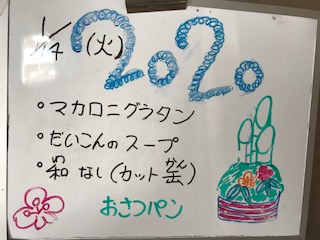 1/14 (火) 2020
・マカロニグラタン
・だいこんのスープ
・和なし(カット缶)
おさつパン